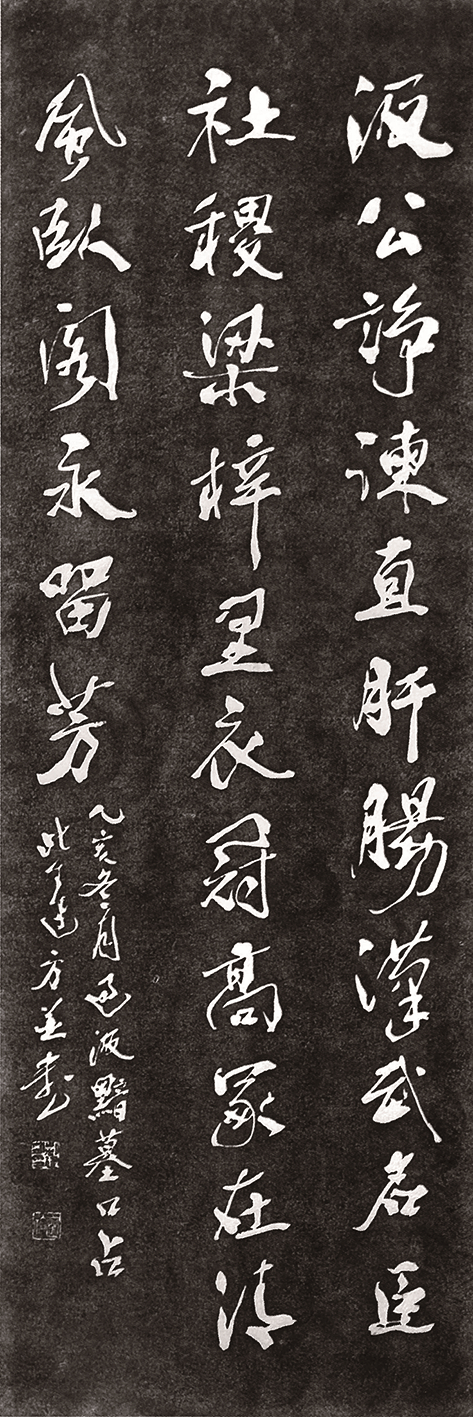 汲公諍諫直肝腸漢武名臣
社稷梁梓里衣冠高冢在清
風臥閣永留芳
乙亥冬月過汲黯墓口占
方並書